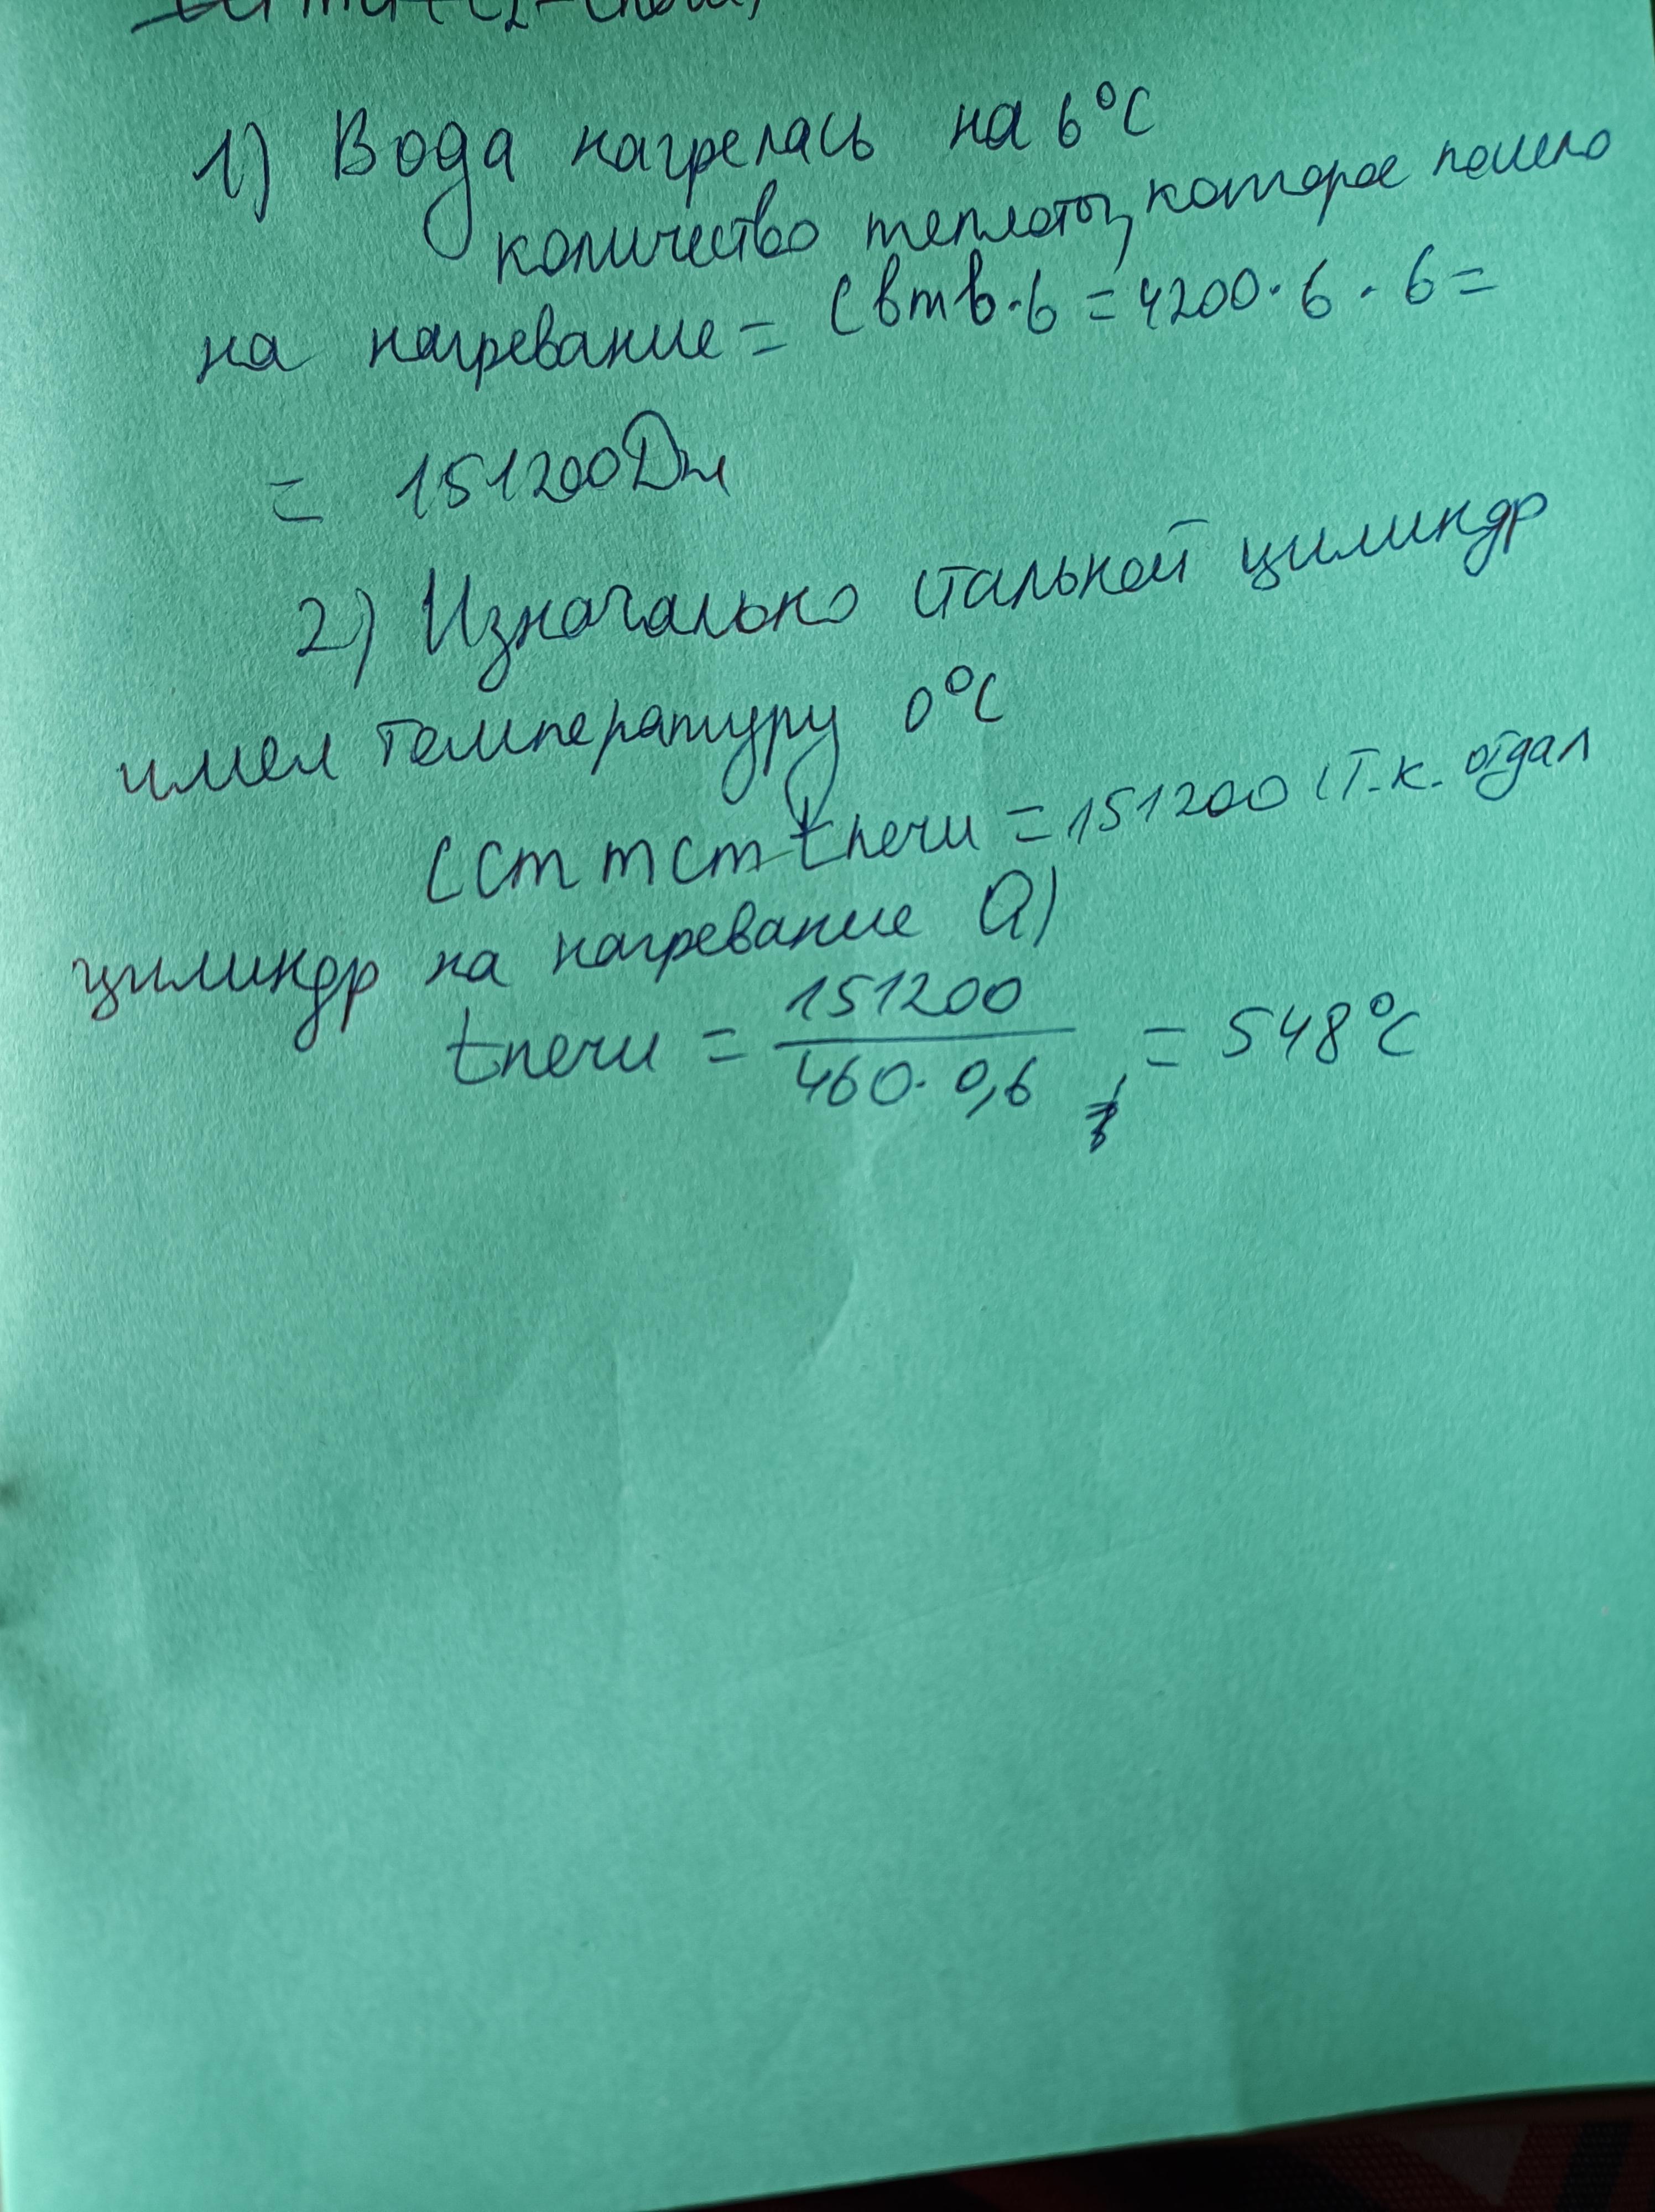 1) Вода нагрелась на 6°C
количество теплоты, которое пошло
на нагревание = Cвmв·6 = 4200·6·6 =
= 151200Дж
2) Изначально стальной цилиндр
имел температуру 0°C
Cст mст tпечи = 151200 (т.к. отдал
цилиндр на нагревание Q)
tпечи = 151200 / 460·0,6 = 548°C